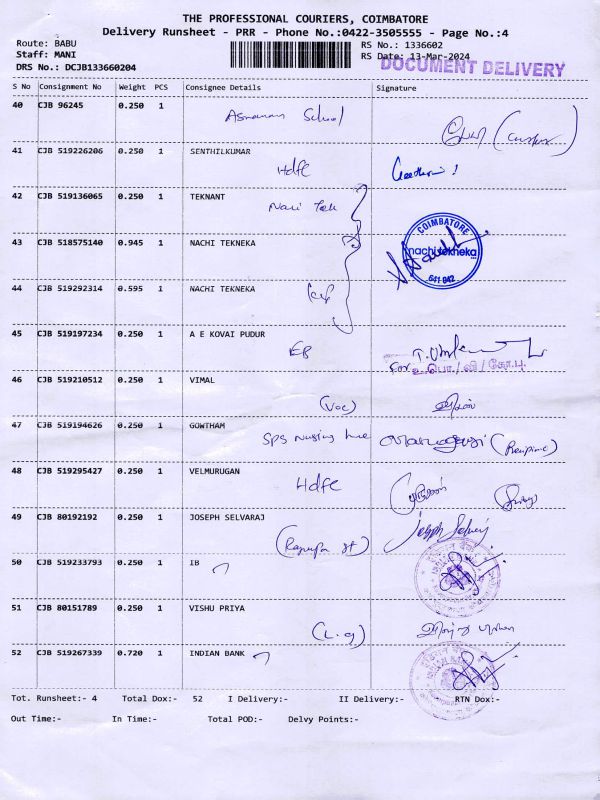 THE PROFESSIONAL COURIERS, COIMBATORE
Delivery Runsheet - PRR - Phone No.:0422-3505555 - Page No.:4
Route: BABU RS No.: 1336602
Staff: MANI RS Date: 13-Mar-2024
DRS No.: DCJB133660204 DOCUMENT DELIVERY
S No Consignment No Weight PCS Consignee Details Signature
40 CJB 96245 0.250 1 School
41 CJB 519226206 0.250 1 SENTHILKUMAR
Hdfc
42 CJB 519136065 0.250 1 TEKNANT
COIMBATORE
43 CJB 518575140 0.945 1 NACHI TEKNEKA nachi tekneka
641 042
44 CJB 519292314 0.595 1 NACHI TEKNEKA
45 CJB 519197234 0.250 1 A E KOVAI PUDUR
EB
For உ.பொ./வி/கோ.பு.
46 CJB 519210512 0.250 1 VIMAL
(VOC)
47 CJB 519194626 0.250 1 GOWTHAM
SPS
48 CJB 519295427 0.250 1 VELMURUGAN
Hdfc
49 CJB 80192192 0.250 1 JOSEPH SELVARAJ
Joseph
50 CJB 519233793 0.250 1 IB
51 CJB 80151789 0.250 1 VISHU PRIYA
52 CJB 519267339 0.720 1 INDIAN BANK
Tot. Runsheet:- 4 Total Dox:- 52 I Delivery:- II Delivery:- RTN Dox:-
Out Time:- In Time:- Total POD:- Delvy Points:-